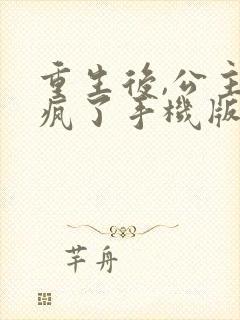 重生後,公主
瘋了手機版
芊舟